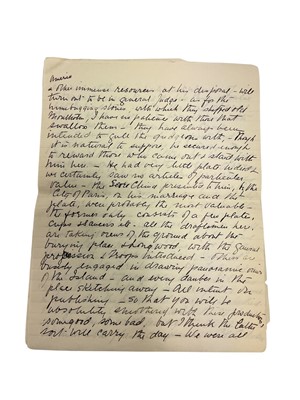 & the immense resources at his disposal - will
turn out to be in general fudge - as for the
humbugging stories with which they stuffed old
I have no patience with those that
swallow them - they have always been
intended to gull the with - Tho'
it is natural to suppose, he secured enough
to reward those who came out & stand with
him here - He had very little plate indeed &
we certainly saw no articles of particular
value - the China presented to him, by the
City of Paris, on his marriage and the
plate, were probably the most valuable -
the former only consists of a few plates,
cups saucers etc. all the draftsmen here,
are taking views of the ground about the
burying place, with the funeral
procession & troops introduced - Others are
busily engaged in drawing panoramic views
of the Island - and every dauber in the
place sketching away - All intent on
publishing - so that you will be
absolutely smothered with their productions
some good, some bad, but I think the
sort will carry the day - We were all